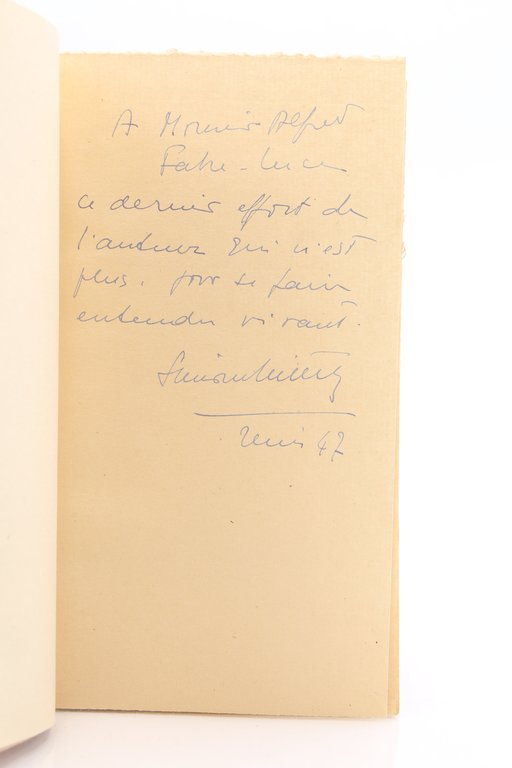 A Monsieur Alfred
Fabre-Luce
ce dernier effort de
l'auteur qui n'est
plus. pour se faire
entendre vivant.
47